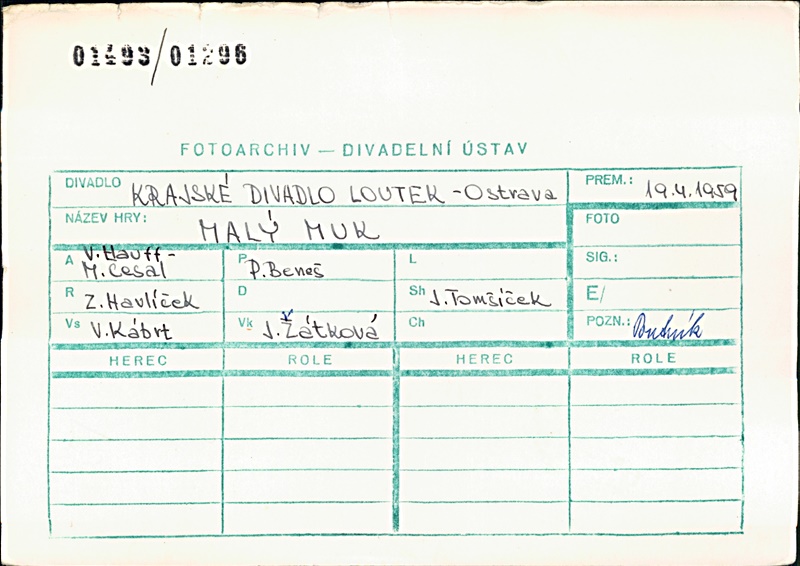 01493/01296
FOTOARCHIV — DIVADELNÍ ÚSTAV
DIVADLO KRAJSKÉ DIVADLO LOUTEK - Ostrava PREM.: 19.4.1959
NÁZEV HRY: MALÝ MUK FOTO
A V. Hauff - M. Cesal P P. Beneš L SIG.:
R Z. Havlíček D Sh J. Tomšíček E/
Vs V. Kábrt Vk J. Žátková Ch POZN.:
HEREC ROLE HEREC ROLE